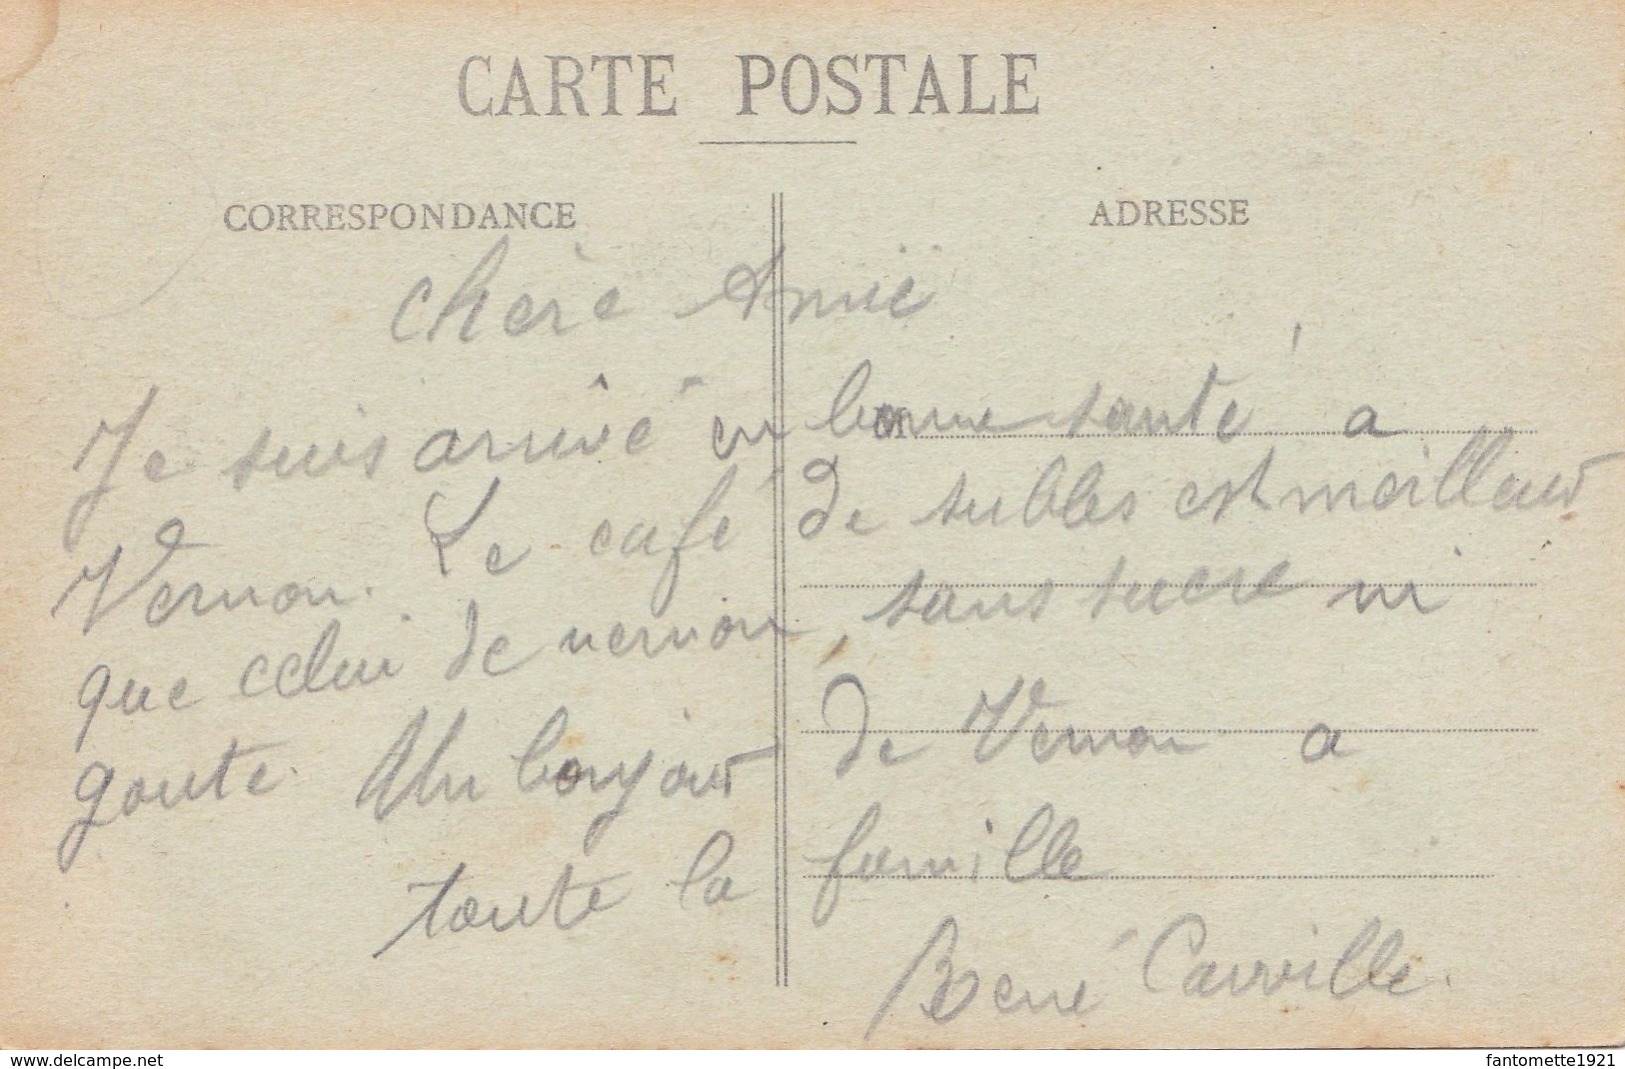 CARTE POSTALE
CORRESPONDANCE
ADRESSE
Chère Amie
Je suis arrivé en bonne santé a
Vernon. Le café de subles est meilleur
que celui de vernon, sans sucre ni
goute. Un bonjour de Vernon a
toute la famille
René Carville.
www.delcampe.net
fantomette1921